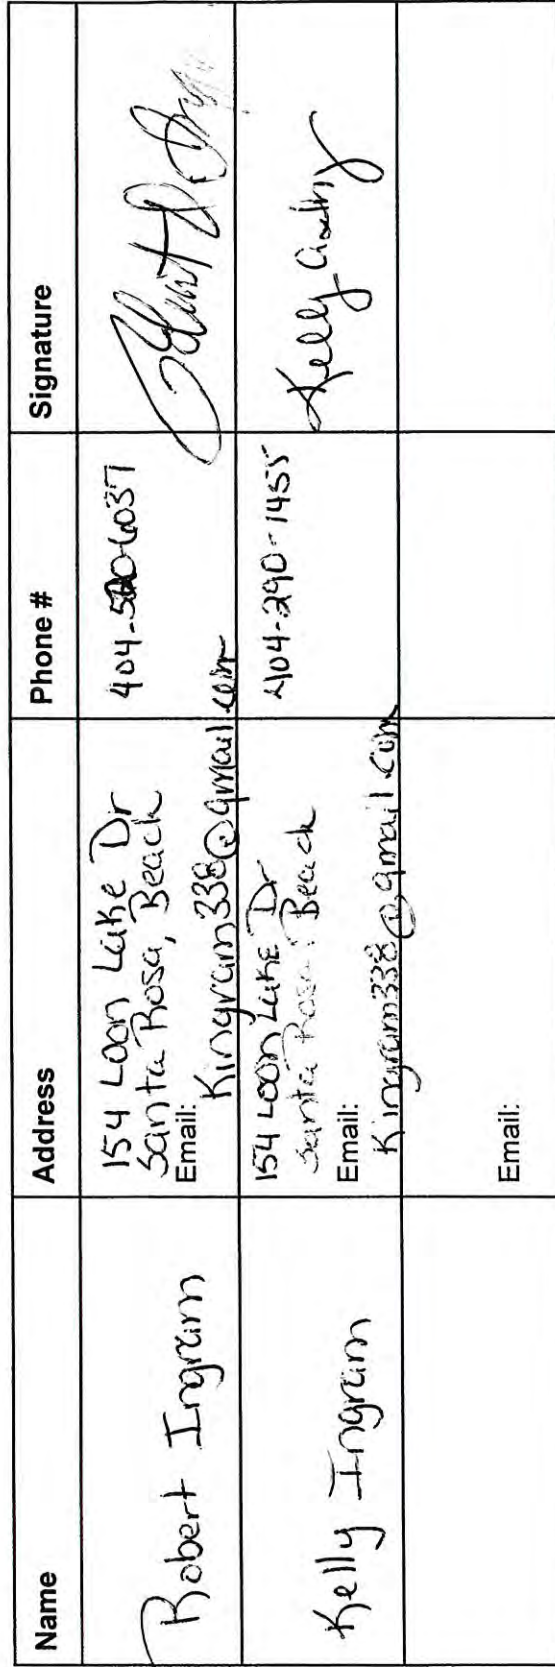 Name Address Phone # Signature
Robert Ingram
154 Loon Lake Dr
Santa Rosa, Beach
Email:
Kingram338@gmail.com
Kelly Ingram
154 Loon Lake Dr
Santa Rosa, Beach
Email:
Kingram338@gmail.com
404-290-1455
Kelly
Email: